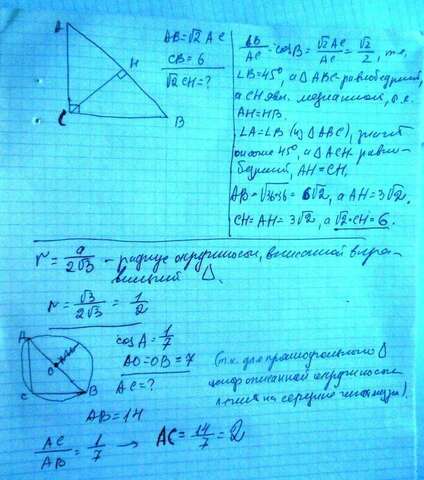 A
H
C
B
AB = √2 AC
CB = 6
√2 CH = ?
AB/AC = cosB = √2 AC/AC = √2/2, т.е.
∠B = 45°, а △ABC - равнобедрен.,
а CH явл. медианой, т.е.
AH = HB.
∠A = ∠B (из △ABC), значит
45°, а △ACH равно-
бедрен., AH = CH.
AB = √36+36 = 6√2, а AH = 3√2.
CH = AH = 3√2, а √2·CH = 6.
r = a/2√3 - радиус окружности, вписанной в пра-
вильный △.
r = √3/2√3 = 1/2
A
O
C
B
cos A = 1/7
AO = OB = 7
AC = ?
(т.к. для прямоугольного △
центр описанной окружности
лежит на середине гипотенузы).
AB = 14
AC/AB = 1/7 → AC = 14/7 = 2